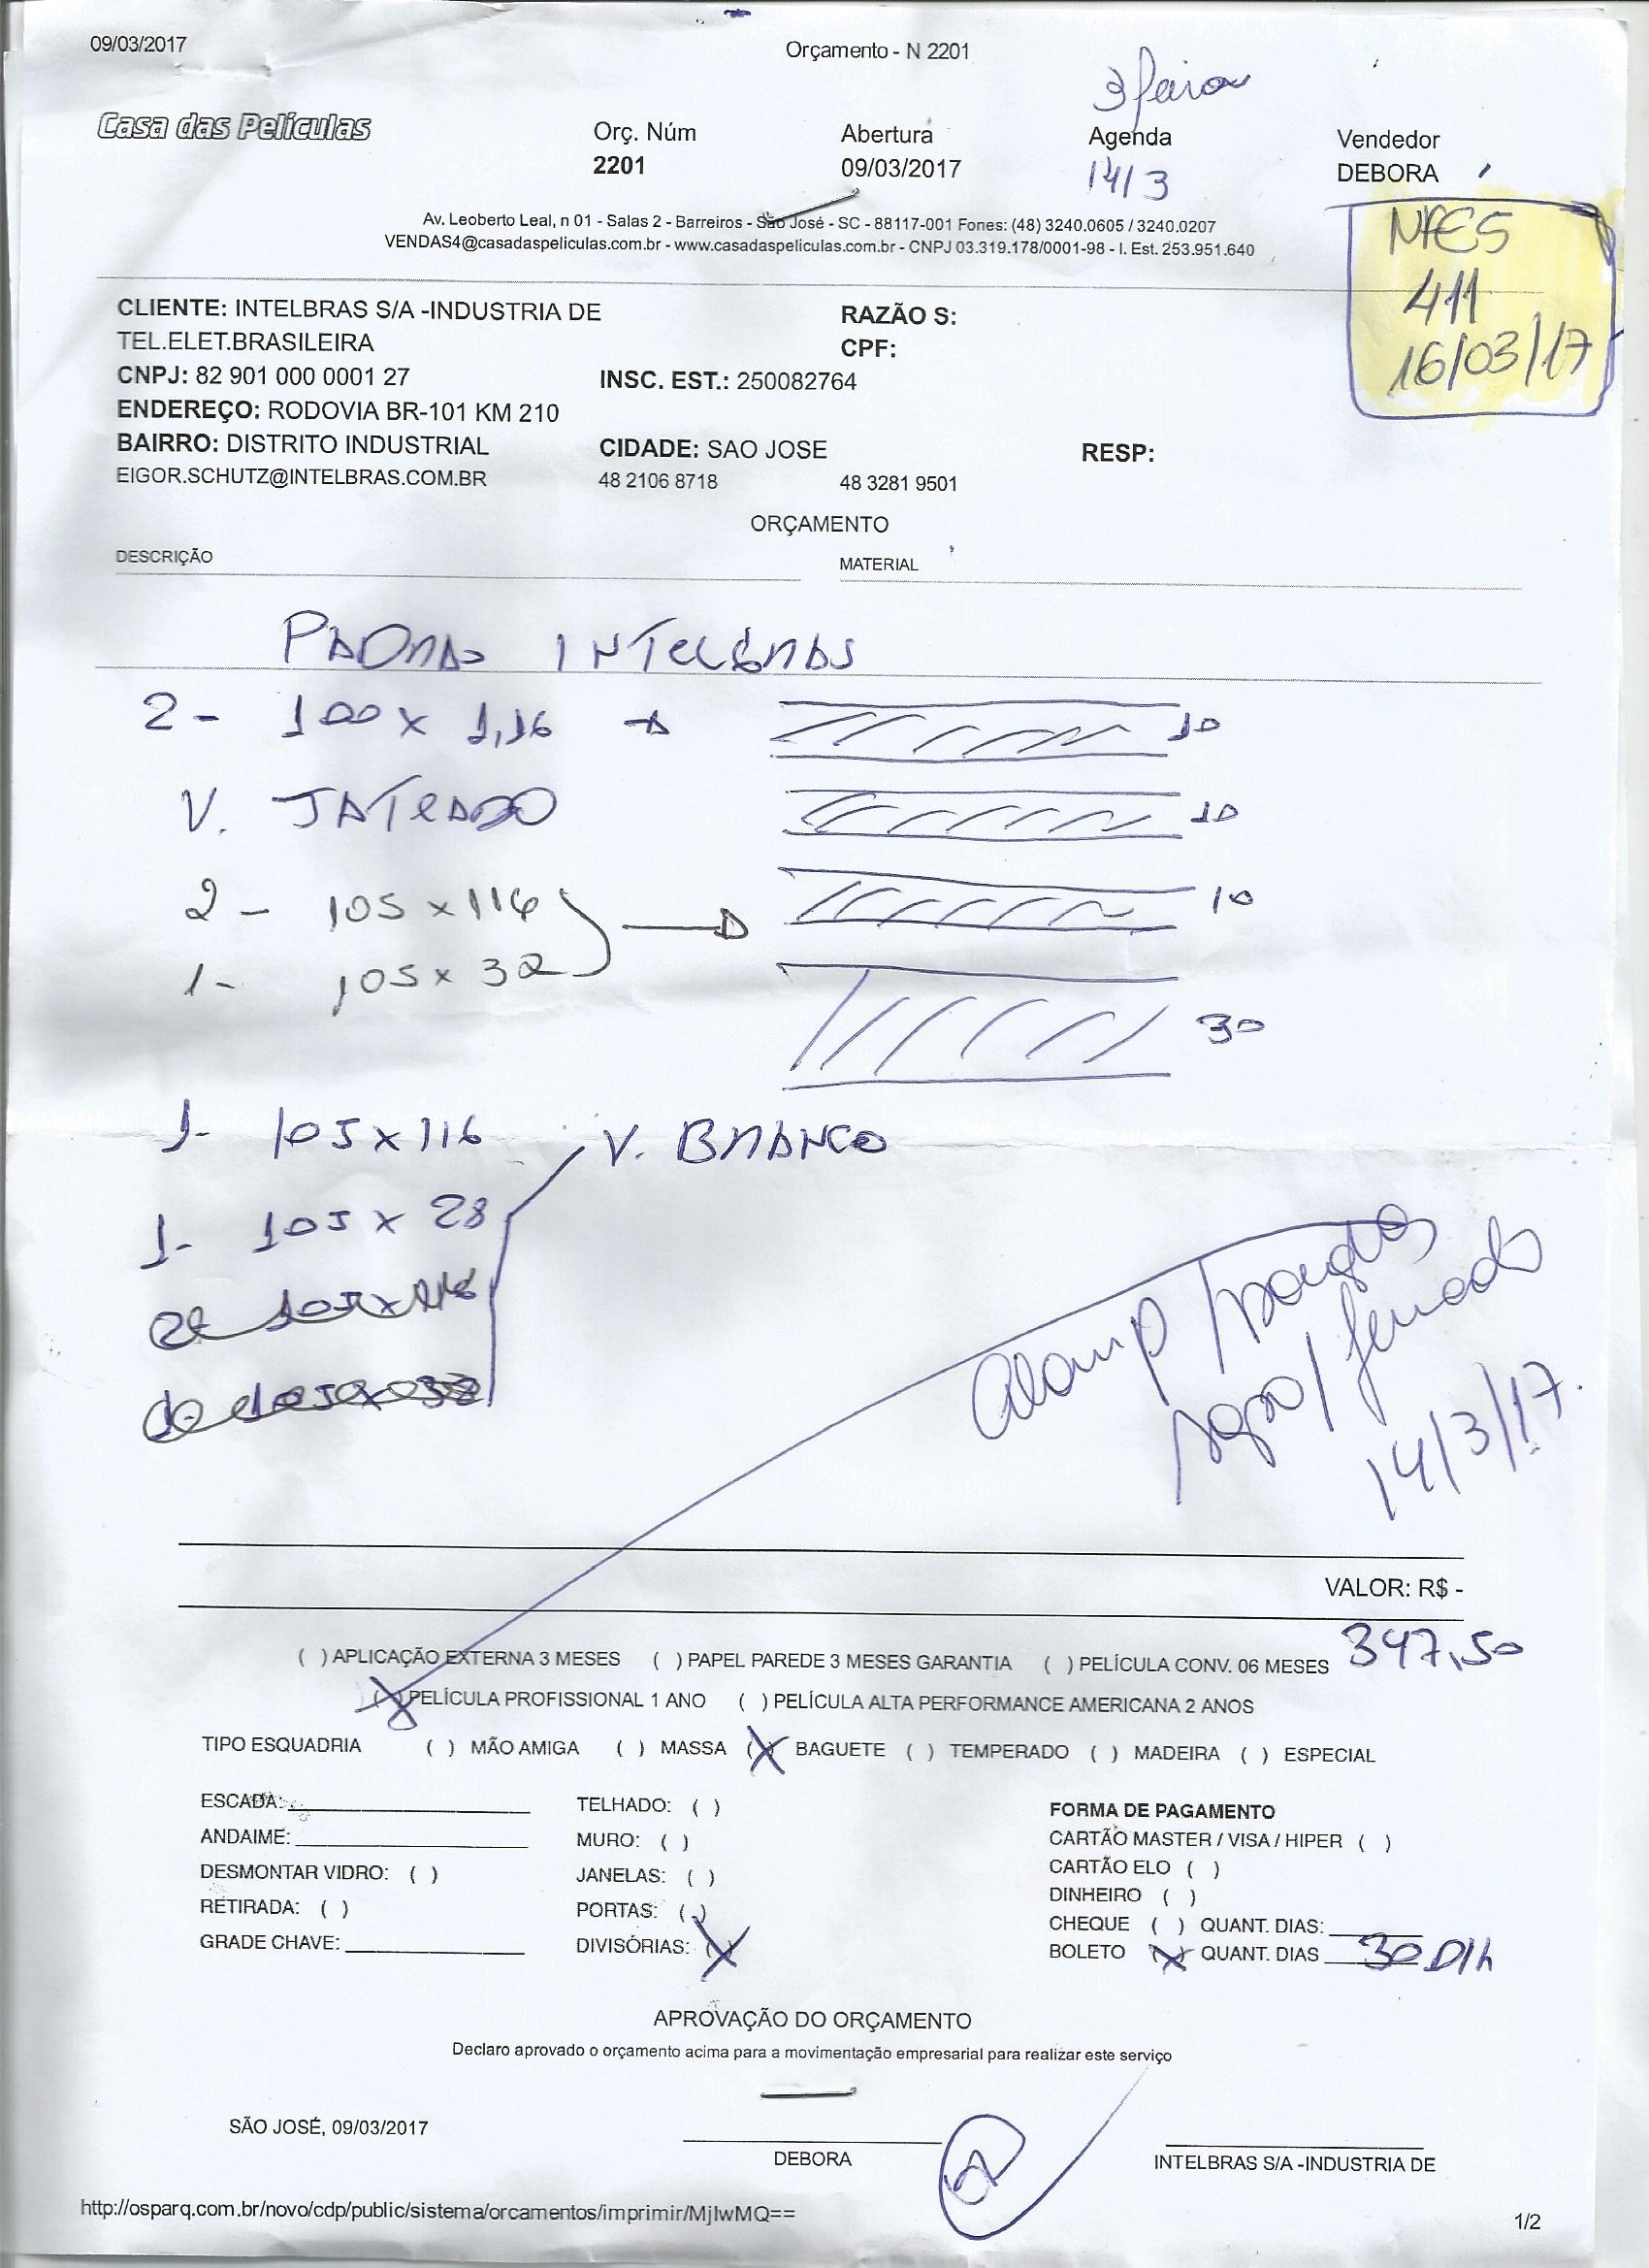 09/03/2017
Orçamento - N 2201
3 feira
Casa das Películas
Orç. Núm
2201
Abertura
09/03/2017
Agenda
14/3
Vendedor
DEBORA
Av. Leoberto Leal, n 01 - Salas 2 - Barreiros - São José - SC - 88117-001 Fones: (48) 3240.0605 / 3240.0207
VENDAS4@casadaspeliculas.com.br - www.casadaspeliculas.com.br - CNPJ 03.319.178/0001-98 - I. Est. 253.951.640
NFES
411
16/03/17
CLIENTE: INTELBRAS S/A -INDUSTRIA DE
TEL.ELET.BRASILEIRA
RAZÃO S:
CPF:
CNPJ: 82 901 000 0001 27
INSC. EST.: 250082764
ENDEREÇO: RODOVIA BR-101 KM 210
BAIRRO: DISTRITO INDUSTRIAL
CIDADE: SAO JOSE
RESP:
EIGOR.SCHUTZ@INTELBRAS.COM.BR
48 2106 8718
48 3281 9501
ORÇAMENTO
DESCRIÇÃO
MATERIAL
PADRAO INTELBRAS
2- 100 x 1,16
10
V. JATEADO
10
2 - 105 x 116
10
1- 105 x 32
30
1- 105 x 116
V. BRANCO
1- 105 x 28
14/3/17.
VALOR: R$ -
347,50
( ) APLICAÇÃO EXTERNA 3 MESES ( ) PAPEL PAREDE 3 MESES GARANTIA ( ) PELÍCULA CONV. 06 MESES
(X) PELÍCULA PROFISSIONAL 1 ANO ( ) PELÍCULA ALTA PERFORMANCE AMERICANA 2 ANOS
TIPO ESQUADRIA ( ) MÃO AMIGA ( ) MASSA (X) BAGUETE ( ) TEMPERADO ( ) MADEIRA ( ) ESPECIAL
ESCADA:
ANDAIME:
DESMONTAR VIDRO: ( )
RETIRADA: ( )
GRADE CHAVE:
TELHADO: ( )
MURO: ( )
JANELAS: ( )
PORTAS: ( )
DIVISÓRIAS: (X)
FORMA DE PAGAMENTO
CARTÃO MASTER / VISA / HIPER ( )
CARTÃO ELO ( )
DINHEIRO ( )
CHEQUE ( ) QUANT. DIAS:
BOLETO (X) QUANT. DIAS 30 DIA
APROVAÇÃO DO ORÇAMENTO
Declaro aprovado o orçamento acima para a movimentação empresarial para realizar este serviço
SÃO JOSÉ, 09/03/2017
DEBORA
INTELBRAS S/A -INDUSTRIA DE
http://osparq.com.br/novo/cdp/public/sistema/orcamentos/imprimir/MjIwMQ==
1/2